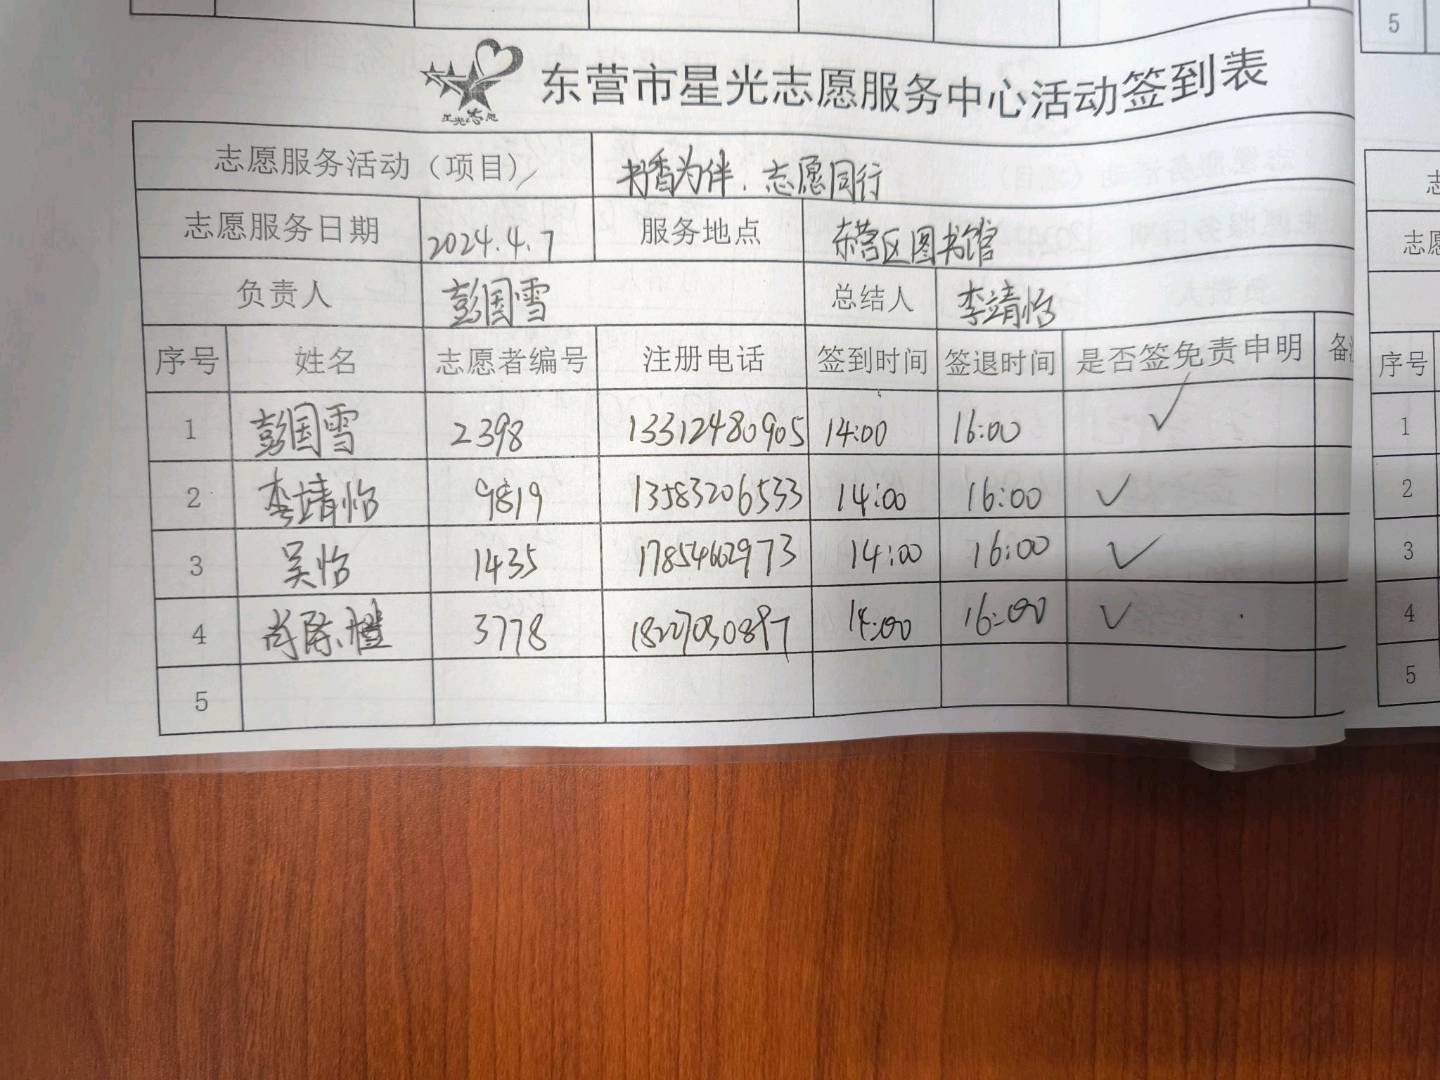 5
星光志愿
东营市星光志愿服务中心活动签到表
志愿服务活动（项目） 书香为伴，志愿同行
志愿服务日期 2024.4.7 服务地点 东营区图书馆
负责人 彭国雪 总结人 李靖怡
序号 姓名 志愿者编号 注册电话 签到时间 签退时间 是否签免责申明 备
1 彭国雪 2398 13312480905 14:00 16:00 ✓
2 李靖怡 9819 13583206533 14:00 16:00 ✓
3 吴怡 1435 17854602973 14:00 16:00 ✓
4 3778 14:00 16:00 ✓
5
志
志愿
序号
1
2
3
4
5